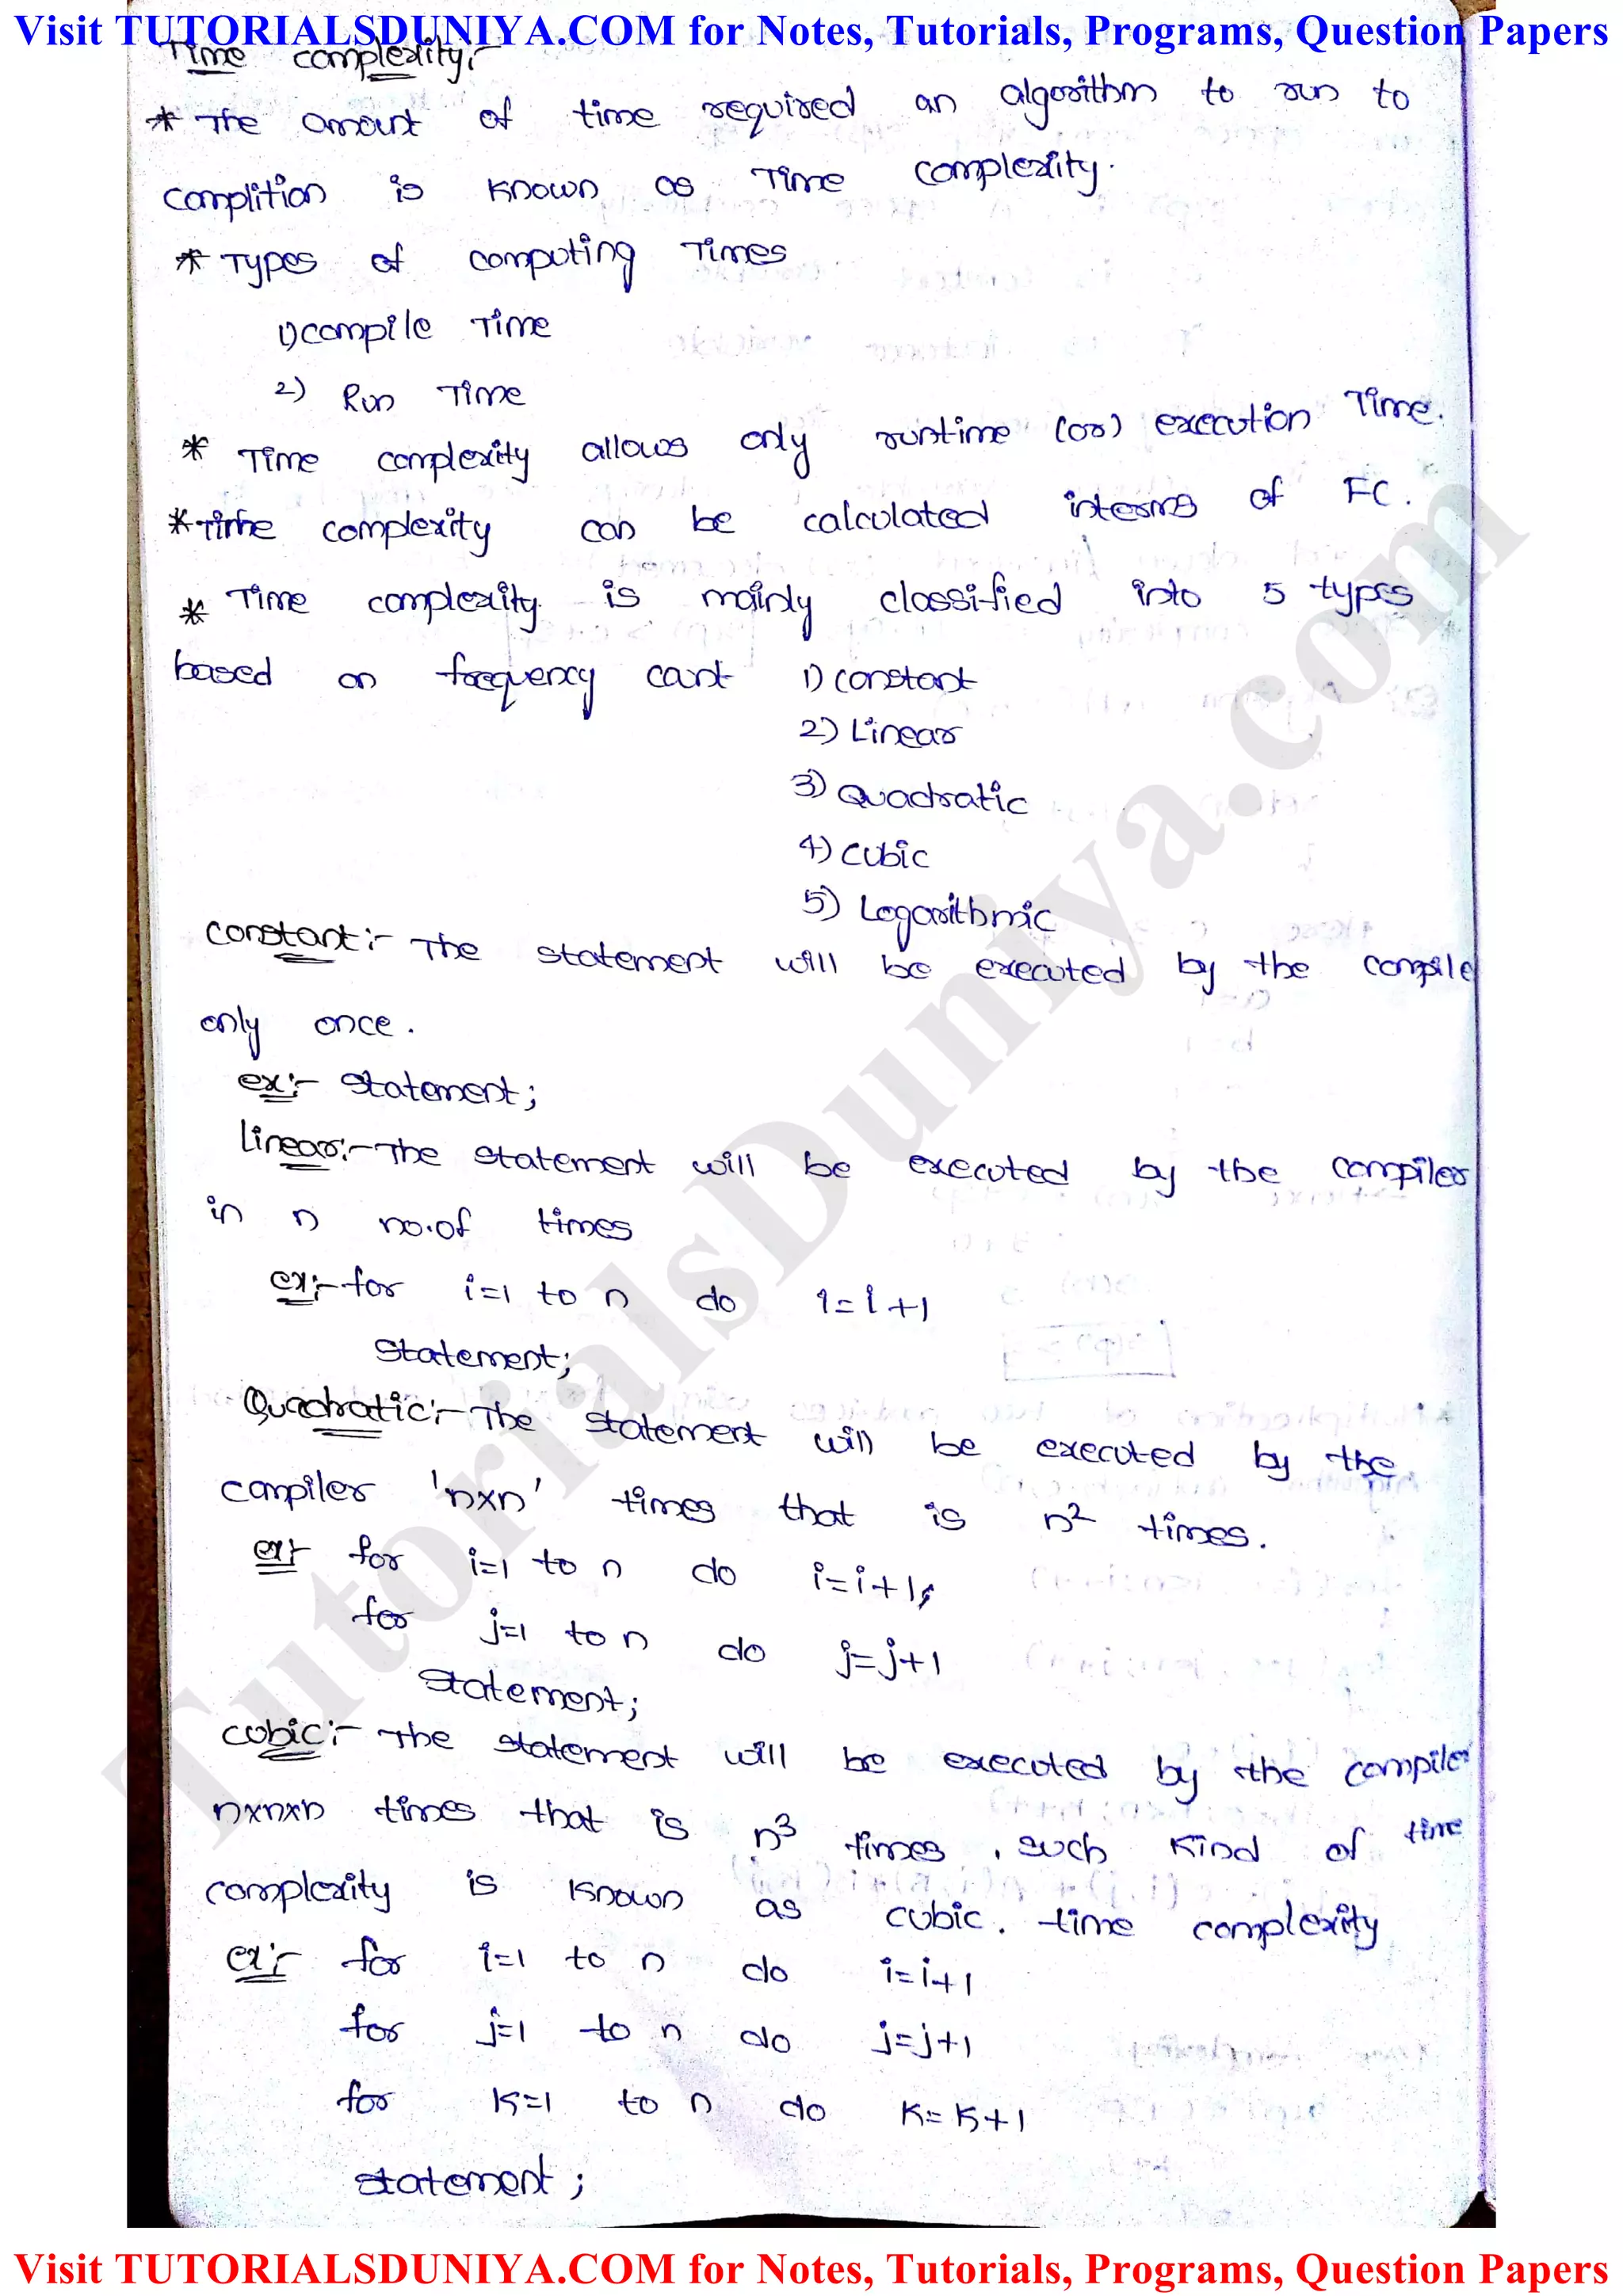 Visit TUTORIALSDUNIYA.COM for Notes, Tutorials, Programs, Question Papers
Time complexity:-
* The amount of time required an algorithm to run to
complition is known as Time complexity.
* Types of computing Times
1) compile Time
2) Run Time
* Time complexity allows only runtime (or) execution Time.
* Time complexity can be calculated interms of FC.
* Time complexity is mainly classified into 5 types
based on frequency cont 1) constant
2) Linear
3) Quadratic
4) Cubic
5) Logarithmic
constant:- The statement will be executed by the compile
only once.
ex:- statement;
linear:- The statement will be executed by the compiler
in n no.of times
ex:- for i=1 to n do i=i+1
statement;
Quadratic:- The statement will be executed by the
compiler 'n×n' times that is n² times.
ex:- for i=1 to n do i=i+1;
for j=1 to n do j=j+1
statement;
cubic:- The statement will be executed by the compiler
n×n×n times that is n³ times, such kind of time
complexity is known as cubic. time complexity
ex:- for i=1 to n do i=i+1
for j=1 to n do j=j+1
for k=1 to n do k=k+1
statement;
TutorialsDuniya.com
Visit TUTORIALSDUNIYA.COM for Notes, Tutorials, Programs, Question Papers